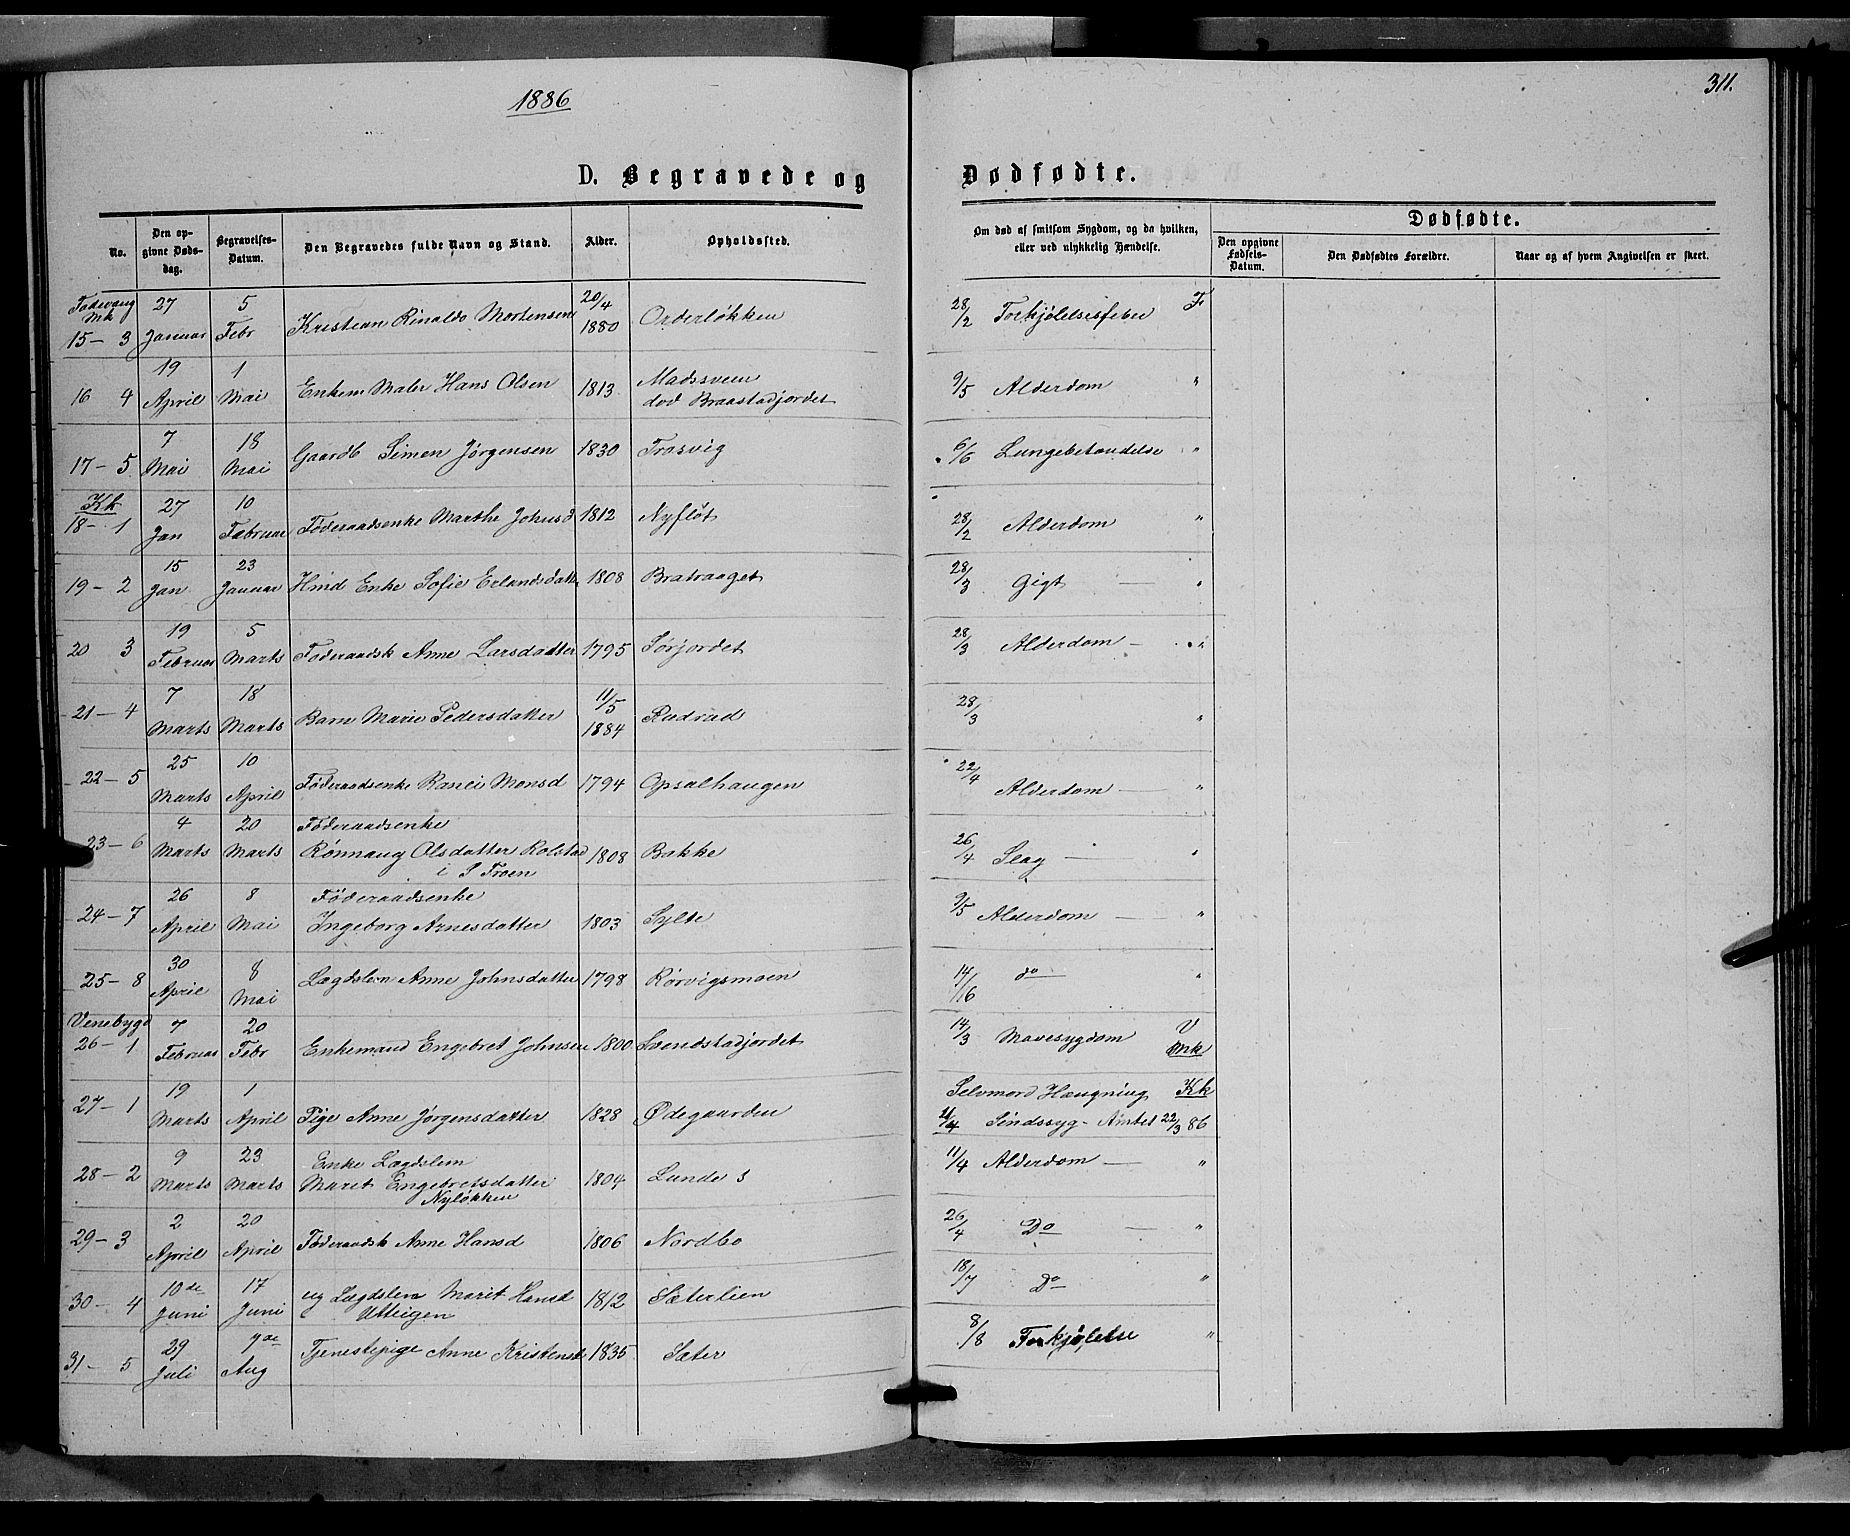 1886
311.
D. Begravede og Dødfødte.
No.
Den opgivne Dødsdag.
Begravelses-Datum.
Den Begravedes fulde Navn og Stand.
Alder.
Opholdssted.
Om død af smitsom Sygdom, og da hvilken, eller ved ulykkelig Hændelse.
Dødfødte.
Den opgivne Fødsels-Datum.
Den Dødfødtes Forældre.
Naar og af hvem Angivelsen er skeet.
Mk
15 - 3 27 Januar 5 Febr Kristian Rinaldo Mortensen 20/4 1880 Orderløkken 28/2 Forkjølelsesfeber F
16 4 19 April 1 Mai Enkem Maler Hans Olsen 1813 Madssveen død Braastadjordet 9/5 Alderdom "
17 - 5 7 Mai 18 Mai Gaardb Simen Jørgensen 1830 Trosvig 6/6 Lungebetændelse "
Kk
18 - 1 27 Jan 10 Februar Föderaadsenke Marthe Johnsd 1812 Nyfløt 28/2 Alderdom "
19 - 2 15 Jan 23 Januar Hmd Enke Sofie Erlandsdatter 1808 Bratraaget 28/3 Gigt "
20 3 19 Februar 5 Marts Föderaadsk Anne Larsdatter 1795 Sørjordet 28/3 Alderdom "
21 - 4 7 Marts 18 Marts Barn Marie Pedersdatter 11/5 1884 Rudrud 28/3 "
22 - 5 25 Marts 10 April Föderaadsenke Ranei Monsd 1794 Opsalhaugen 22/4 Alderdom "
23 - 6 4 Marts 20 Marts Föderaadsenke
Rønnaug Olsdatter Kolstad 1808 Bakke 26/4 Slag "
i S Troen
24 - 7 26 April 8 Mai Föderaadsenke
Ingeborg Arnesdatter 1803 Sylte 9/5 Alderdom "
25 - 8 30 April 8 Mai Lægdslem Anne Johnsdatter 1798 Rørvigsmoen 14/16 do "
Venebygd
26 - 1 7 Februar 20 Febr Enkemand Engebret Johnsen 1800 Svendstadjordet 14/3 Mavesygdom V
mk
27 - 1 19 Marts 1 April Pige Anne Jørgensdatter 1828 Ødegaarden Selvmord Hængning Kk
11/4 Sindssyg - Amtet 22/3 86
28 - 2 9 Marts 23 Marts Enke Lægdslem
Marit Engebretsdatter 1804 Lunde S 11/4 Alderdom "
Nyløkken
29 - 3 2 April 20 April Föderaadsk Anne Hansd 1806 Nordbo 26/4 Do "
30 - 4 10de Juni 17 Juni ug Lægdslem Marit Hansd 1812 Sæterlien 18/7 Do "
Utteigen
31 - 5 29 Juli 7de Aug Tjenestepige Anne Kristensd 1835 Sæter 8/8 Forkjølelse "